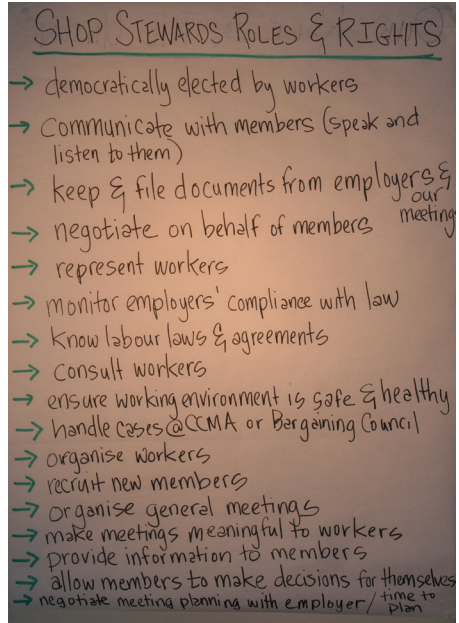 SHOP STEWARDS ROLES & RIGHTS
→ democratically elected by workers
→ communicate with members (speak and
listen to them)
→ keep & file documents from employers &
our
meetings
→ negotiate on behalf of members
→ represent workers
→ monitor employers' compliance with law
→ know labour laws & agreements
→ consult workers
→ ensure working environment is safe & healthy
→ handle cases @ CCMA or Bargaining Council
→ organise workers
→ recruit new members
→ organise general meetings
→ make meetings meaningful to workers
→ provide information to members
→ allow members to make decisions for themselves
→ negotiate meeting planning with employer / time to
plan